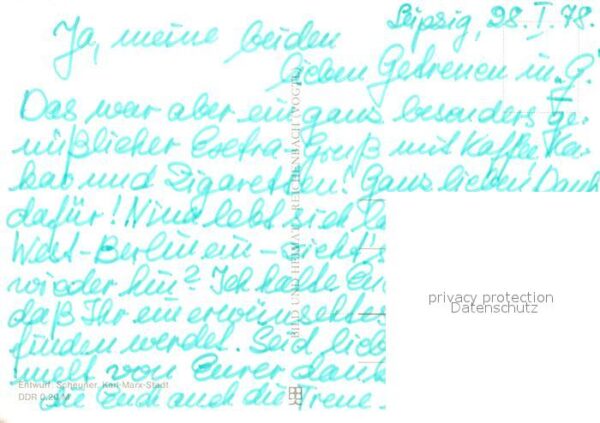 Leipzig, 28. I. 78.
Ja, meine beiden
lieben Getreuen in G.!
Das war aber ein ganz besonders ge-
nüßlicher Extra-Gruß mit Kaffee, Ka-
kao und Zigaretten! Ganz lieben Dank
dafür! Nina lebt sich
West-Berlin ein - nicht
wieder hin? Ich halte
daß Ihr ein erwünschtes
finden werdet. Seid
von Eurer
die Euch auch die Treue
BILD UND HEIMAT REICHENBACH (VOGTL)
Entwurf: Scheuner, Karl-Marx-Stadt
DDR 0,20 M
privacy protection
Datenschutz